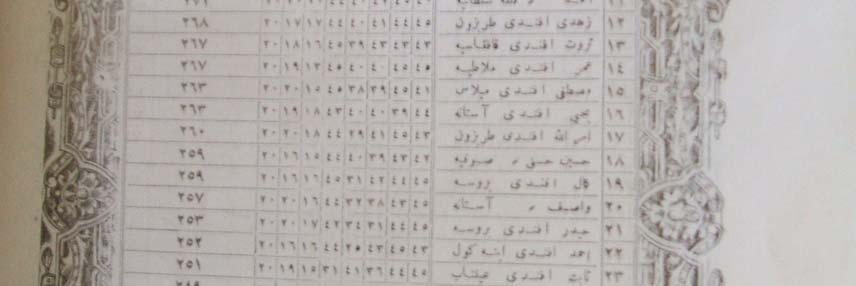 ١٢ زهدی افندی طرزون ٤٥ ٤٤ ٤١ ٤٠ ٤٤ ١٧ ١٧ ٢٠ ٢٦٨
١٣ ثروت افندی ٤٣ ٤٣ ٤٣ ٣٩ ٤٥ ١٦ ١٨ ٢٠ ٢٦٧
١٤ عمر افندی ملاطیه ٤٥ ٤٥ ٤٠ ٤٠ ٤٥ ١٣ ١٩ ٢٠ ٢٦٧
١٥ مصطفی افندی میلاس ٤١ ٤٥ ٣٩ ٣٨ ٤٥ ١٥ ٢٠ ٢٠ ٢٦٣
١٦ یحیی افندی آستانه ٤٤ ٣٩ ٤٠ ٤٠ ٤٣ ١٨ ١٩ ٢٠ ٢٦٣
١٧ امر الله افندی طرزون ٤٣ ٤٥ ٤١ ٢٩ ٤٤ ١٨ ٢٠ ٢٠ ٢٦٠
١٨ حسین حسنی ٤٢ ٤٣ ٣٩ ٤٠ ٤٤ ١٥ ١٦ ٢٠ ٢٥٩
١٩ افندی بروسه ٤٥ ٤٤ ٤٢ ٣١ ٤٥ ١٦ ١٦ ٢٠ ٢٥٩
٢٠ واصیف آستانه ٤٥ ٤٣ ٣٨ ٣٢ ٤٤ ١٦ ٢٠ ٢٠ ٢٥٧
٢١ حیدر افندی بروسه ٤٥ ٤٤ ٣١ ٣٤ ٤٢ ١٧ ٢٠ ٢٠ ٢٥٣
٢٢ احمد افندی اینه کول ٤٣ ٤٥ ٤٣ ٢٥ ٤٤ ١٦ ١٦ ٢٠ ٢٥٢
٢٣ ثابت افندی عینتاب ٤٥ ٤٤ ٣٦ ٤١ ٣١ ١٥ ١٩ ٢٠ ٢٥١